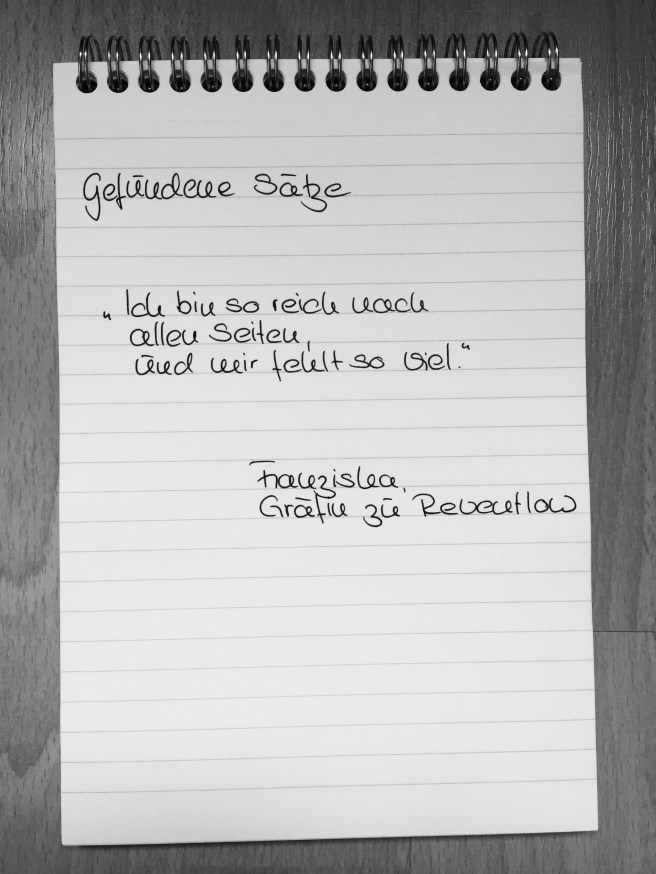 Gefundene Sätze
„Ich bin so reich nach
allen Seiten,
und mir fehlt so viel.“
Franziska,
Gräfin zu Reventlow